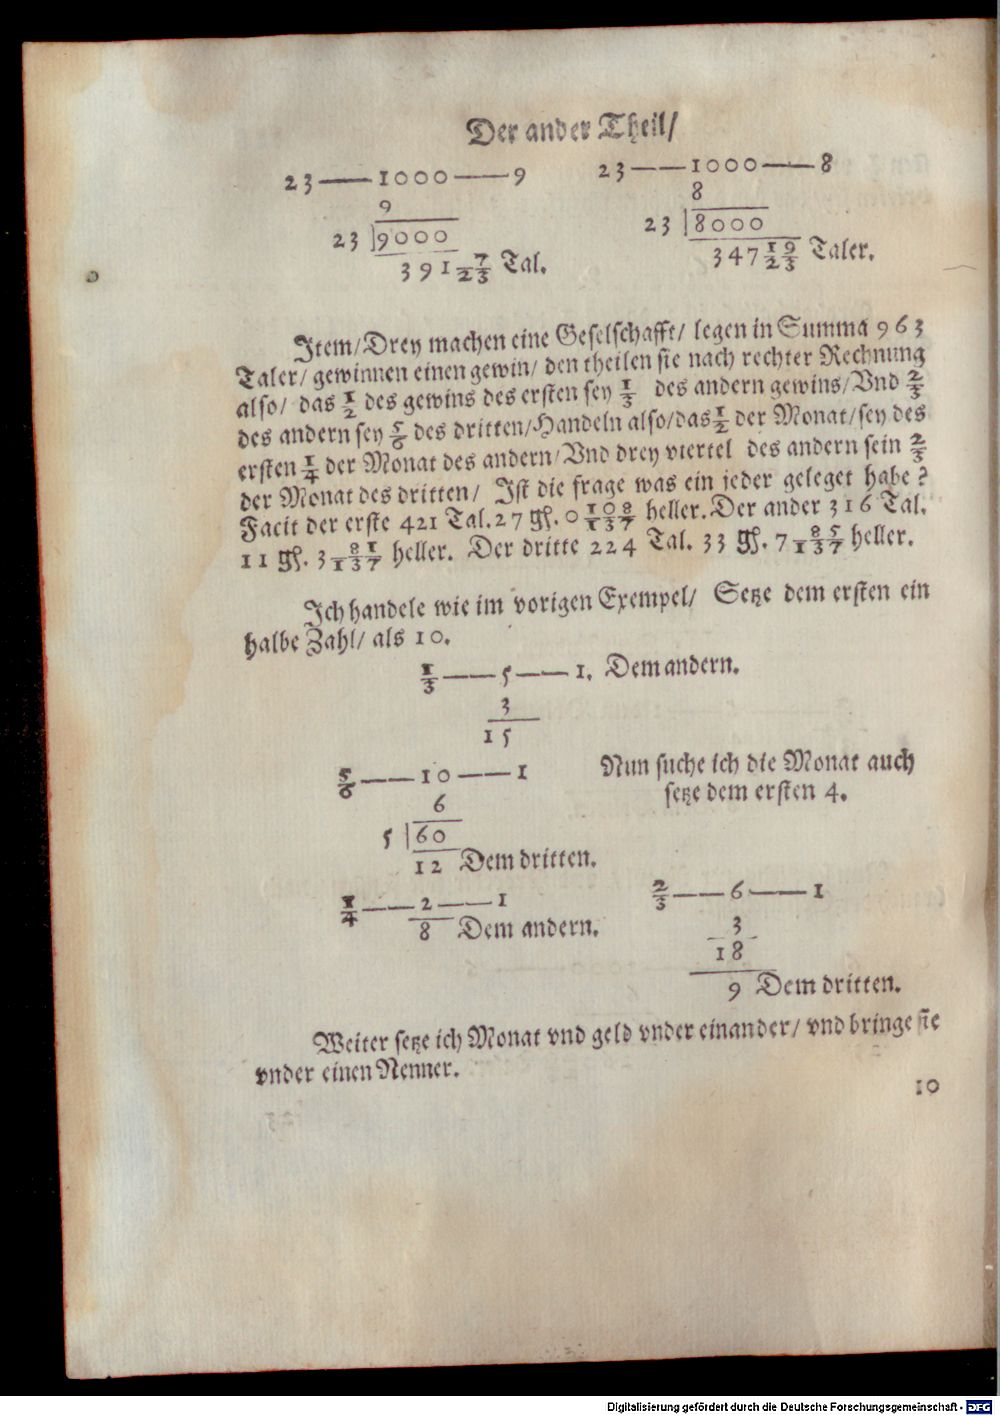 Der ander Theil/
23 —— 1000 —— 9
9
23 |9000
391 7/23 Tal.
23 —— 1000 —— 8
8
23 |8000
347 19/23 Taler.
Item/ Drey machen eine Geselschafft/ legen in Summa 963
Taler/ gewinnen einen gewin/ den theilen sie nach rechter Rechnung
also/ das 1/2 des gewins des ersten sey 1/3 des andern gewins/ Vnd 2/3
des andern sey 5/6 des dritten/ Handeln also/ das 1/2 der Monat/ sey des
ersten 1/4 der Monat des andern/ Vnd drey viertel des andern sein 2/3
der Monat des dritten/ Ist die frage was ein jeder geleget habe?
Facit der erste 421 Tal. 27 gſ. 0 108/137 heller. Der ander 316 Tal.
11 gſ. 3 81/137 heller. Der dritte 224 Tal. 33 gſ. 7 85/137 heller.
Ich handele wie im vorigen Exempel/ Setze dem ersten ein
halbe Zahl/ als 10.
1/3 —— 5 —— 1. Dem andern.
3
15
5/6 —— 10 —— 1
6
5 |60
12 Dem dritten.
Nun suche ich die Monat auch
setze dem ersten 4.
1/4 —— 2 —— 1
8 Dem andern.
2/3 —— 6 —— 1
3
18
9 Dem dritten.
Weiter setze ich Monat vnd geld vnder einander/ vnd bringe sie
vnder einen Nenner.
10
Digitalisierung gefördert durch die Deutsche Forschungsgemeinschaft - DFG